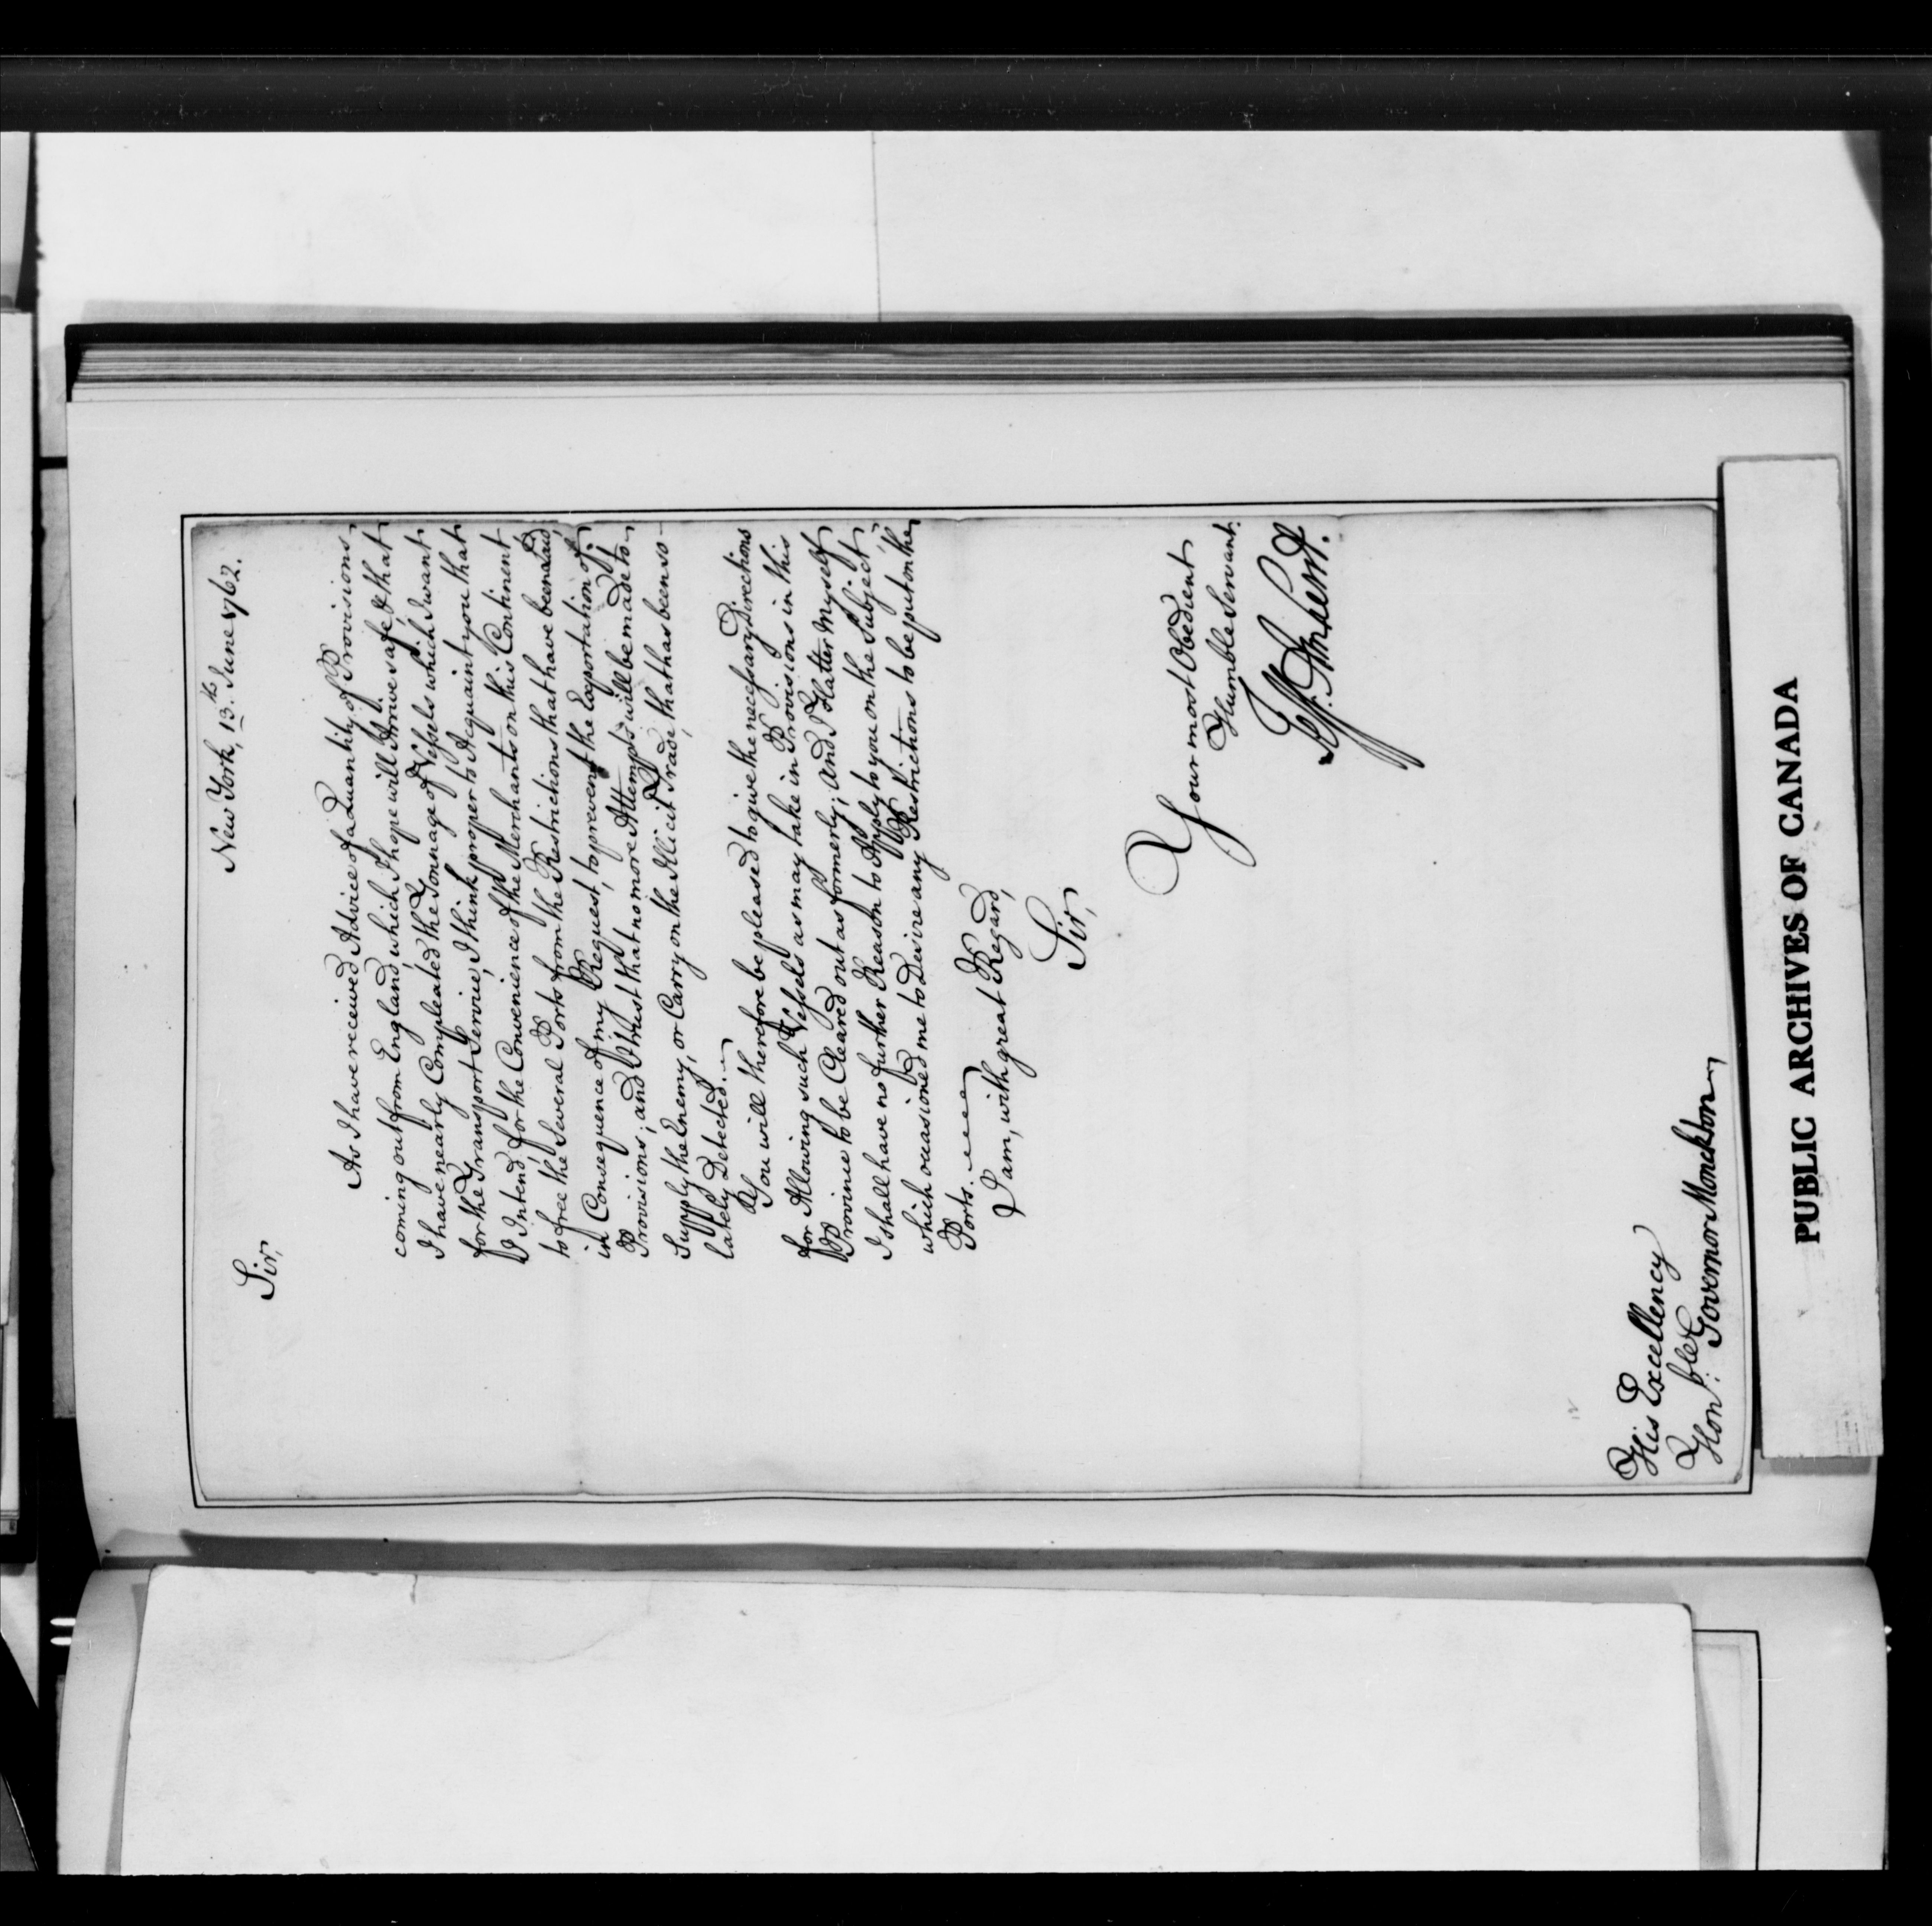 New York, 13.th June 1762.
Sir,
As I have received Advice of a Quantity of Provisions
coming out from England which I hope will Arrive safe, & that
I have nearly Compleated the Tonnage of Vessels which I want
for the Transport Service, I think proper to Acquaint you that
I Intend, for the Convenience of the Merchants on this Continent
to free the Several Ports from the Restrictions that have been Laid,
in Consequence of my Request, to prevent the Exportation of
Provisions; and I trust that no more Attempts will be made to
Supply the Enemy, or Carry on the Illicit Trade, that has been so
lately Detected.
You will therefore be pleased to give the necessary Directions
for Allowing such Vessels as may take in Provisions in this
Province to be Cleared out as formerly; and I Flatter Myself
I shall have no further Reason to Apply to you on the Subject,
which occasioned me to Desire any Restrictions to be put on the
Ports.
I am, with great Regard,
Sir,
Your most Obedient
Humble Servant.
Jeff: Amherst.
His Excellency
Hon:ble Governor Monckton
PUBLIC ARCHIVES OF CANADA